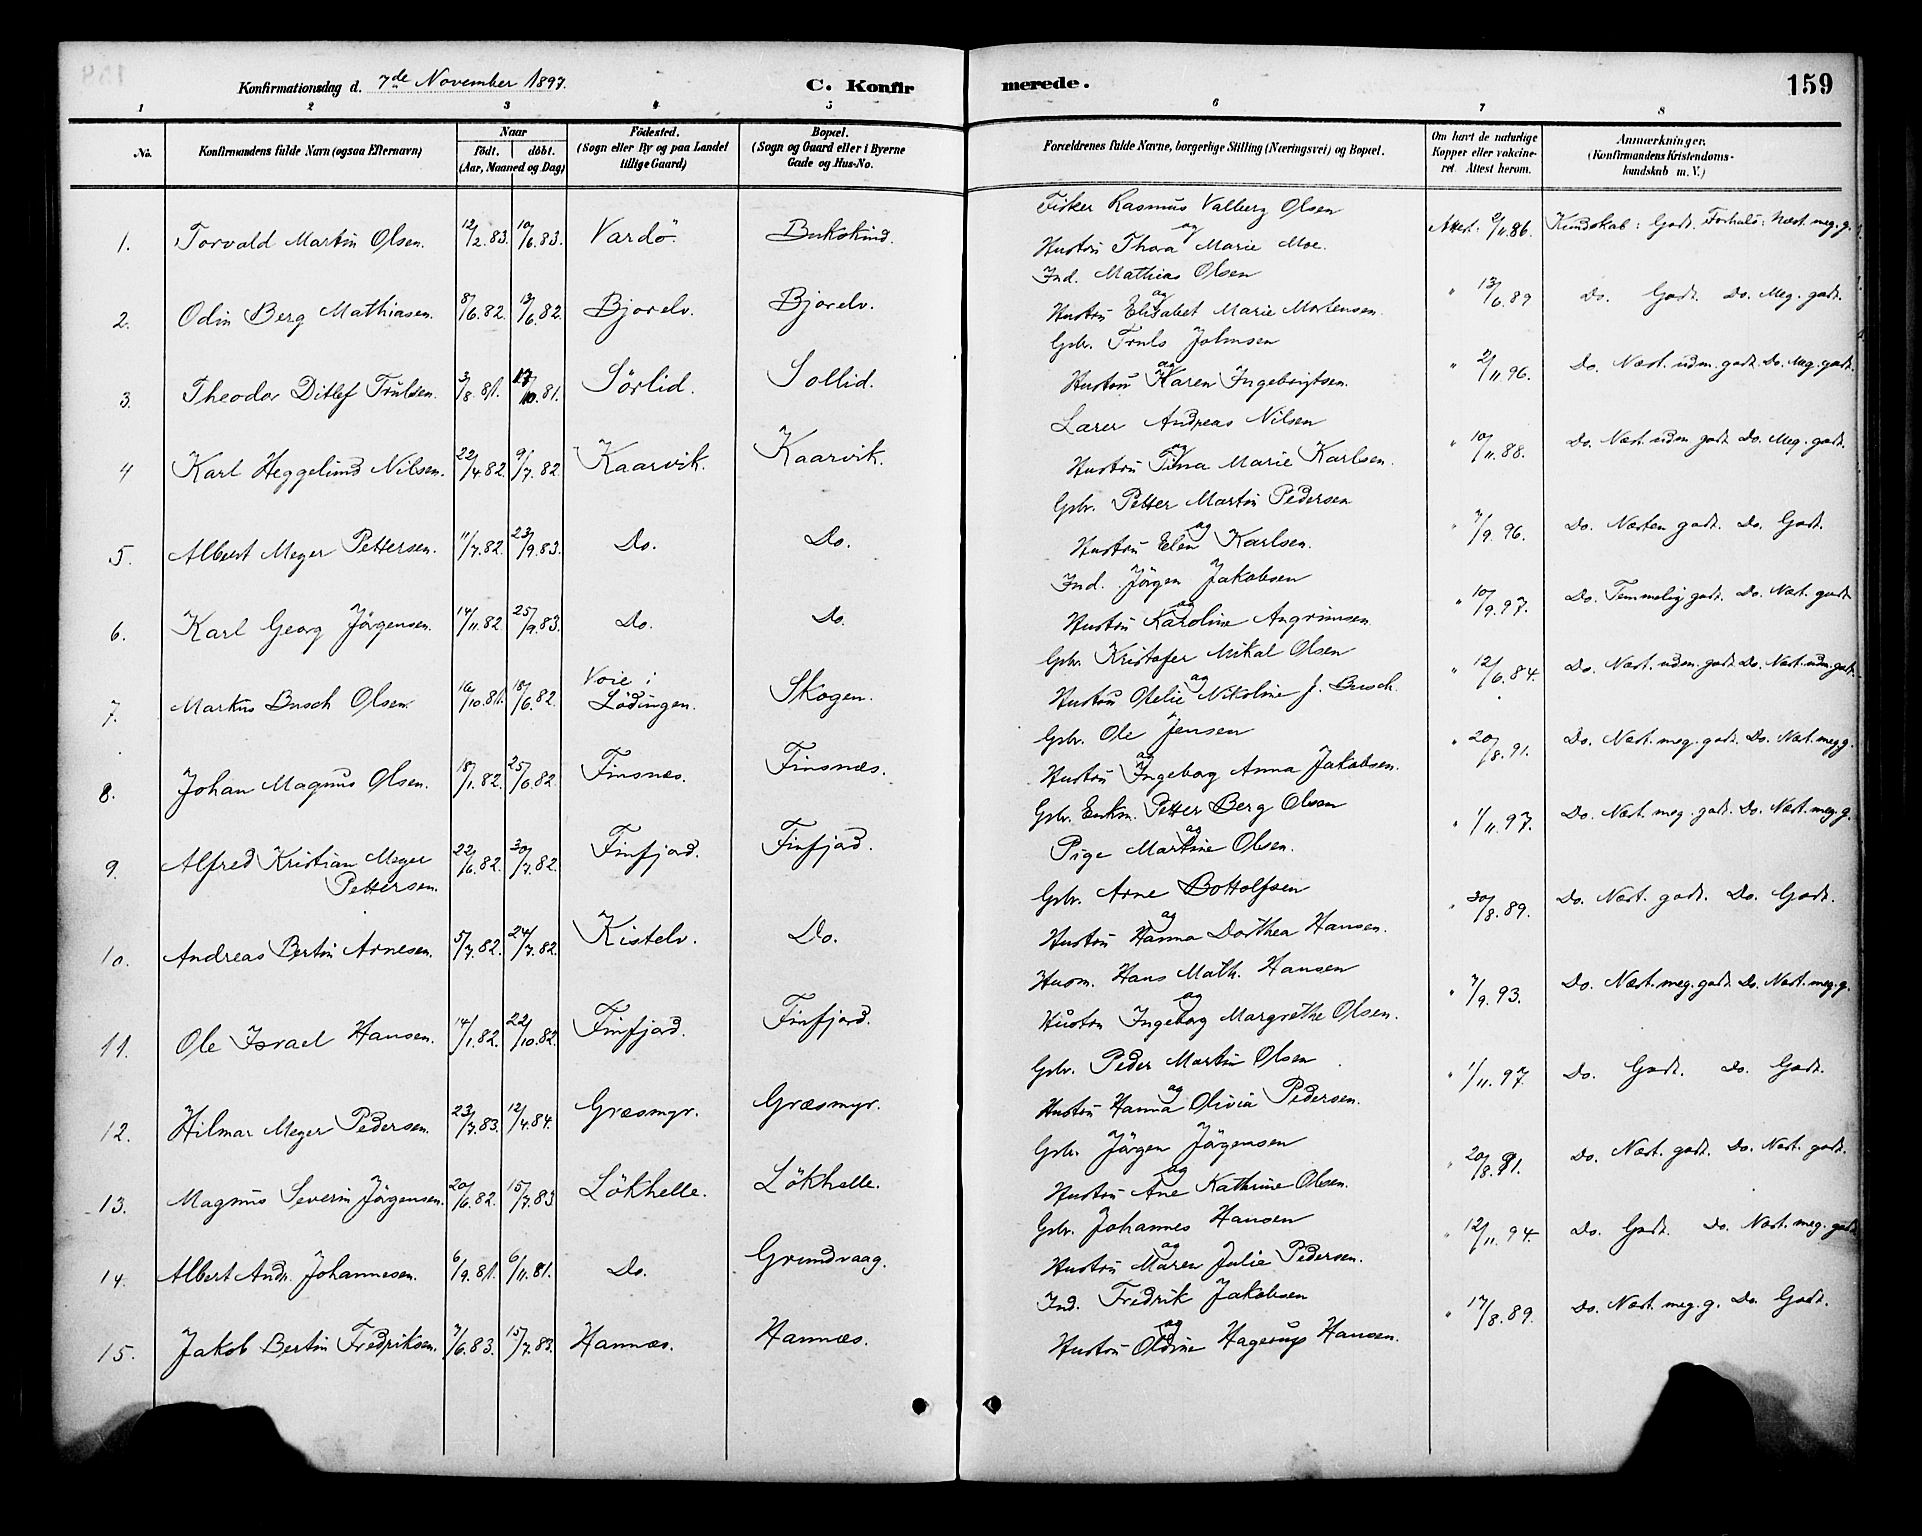 Konfirmationsdag d. 7de November 1897. C. Konfirmerede. 159
1 2 3 4 5 6 7 8
No. Konfirmandens fulde Navn (ogsaa Efternavn) Naar födt. döbt. (Aar, Maaned og Dag) Födested. (Sogn eller By og paa Landet tillige Gaard) Bopæl. (Sogn og Gaard eller i Byerne Gade og Hus-No. Forældrenes fulde Navne, borgerlige Stilling (Næringsvei) og Bopæl. Om havt de naturlige Kopper eller vakcineret. Attest herom. Anmærkninger. (Konfirmandens Kristendomskundskab m. V.)
1. Torvald Martin Olsen. 12/2.83. 10/6.83. Vardö. Bukskind. Fisker Rasmus Valberg Olsen og Hustru Thora Marie Moe. Attest. 9/11.86. Kundskab: Godt. Forhold: Næst. meg. g.
2. Odin Berg Mathiasen. 8/6.82. 13/6.82. Bjorelv. Bjorelv. Ind. Mathias Olsen og Hustru Elisabet Marie Mortensen. " 13/6.89 Do. Godt. Do. Meg. godt.
3. Theodor Ditlef Trulsen. 3/8.81. 17/10.81. Sörlid. Sollid. Gbr. Truls Johnsen og Hustru Karen Ingebrigtsen. " 2/11.96. Do. Næst. udm. godt. Do. Meg. godt.
4 Karl Heggelund Nilsen. 22/4.82. 9/7.82. Kaarvik. Kaarvik. Lærer Andreas Nilsen og Hustru Tina Marie Karlsen. " 10/11.88. Do. Næst. udm. godt Do. Meg. godt.
5. Albert Meyer Pettersen. 11/7.82. 23/9.83. Do. Do. Gbr. Petter Martin Pedersen og Hustru Elen Karlsen. " 7/9.96. Do. Næsten godt. Do. Godt.
6. Karl Georg Jörgensen. 14/11.82. 25/9.83. Do. Do. Ind. Jörgen Jakobsen og Hustru Karoline Angrimsen. " 10/9.97. Do. Temmelig godt. Do. Næst. godt
7. Markus Busch Olsen. 16/10.81. 18/6.82. Voie i Lödingen. Skogen. Gbr. Kristofer Mikal Olsen og Hustru Ofelie Nikoline J. Busch. " 12/6.84. Do. Næst. udm. godt Do. Næst. udm. godt.
8. Johan Magnus Olsen. 18/1.82. 25/6.82. Finsnæs. Finsnæs. Gbr. Ole Jensen og Hustru Ingeborg Anna Jakobsen. " 20/8.91. Do. Næst. meg. godt. Do. Næst. meg g.
9. Alfred Kristian Meyer Pettersen. 22/6.82. 30/7.82. Finfjord. Finfjord. Gbr. Enkm. Petter Berg Olsen og Pige Martine Olsen. " 1/11.97. Do. Næst. meg. godt. Do. Næst. meg. g.
10. Andreas Bertin Arnesen. 5/7.82. 24/7.82. Kistelv. Do. Gbr. Arne Bottolfsen og Hustru Hanna Dorthea Hansen. " 30/8.89. Do. Næst. godt. Do. Godt.
11. Ole Israel Hansen. 14/1.82. 22/10.82. Finfjord. Finfjord. Husm. Hans Math. Hansen og Hustru Ingeborg Margrethe Olsen. " 7/9.93. Do. Næst. meg. godt. Do. Næst. meg. g.
12. Hilmar Meyer Pedersen. 23/7.83. 12/4.84. Græsmyr. Græsmyr. Gbr. Peder Martin Olsen og Hustru Hanna Olivia Pedersen. " 1/11.97. Do. Godt. Do. Godt.
13. Magnus Severin Jörgensen. 20/6.82. 15/7.83 Lökhelle. Lökhelle. Gbr. Jörgen Jörgensen og Hustru Ane Kathrine Olsen. " 20/8.91. Do. Næst. godt. Do. Næst. godt.
14. Albert Andr. Johannesen. 6/9.81. 6/11.81. Do. Grundvaag. Gbr. Johannes Hansen og Hustru Maren Julie Pedersen. " 12/11.94. Do. Godt. Do. Næst. meg. godt
15. Jakob Bertin Fredriksen. 7/6.83. 15/7.83. Hannæs. Hannæs. Ind. Fredrik Jakobsen og Hustru Oldine Hagerup Hansen. " 17/8.89. Do. Næst. meg. g. Do. Godt.